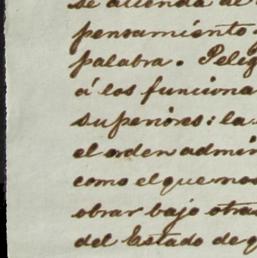 se atienda al
pensamiento
palabra. Pelig
á los funciona
superiores: la
el orden admin
como el que nos
obrar bajo otra
del Estado de q